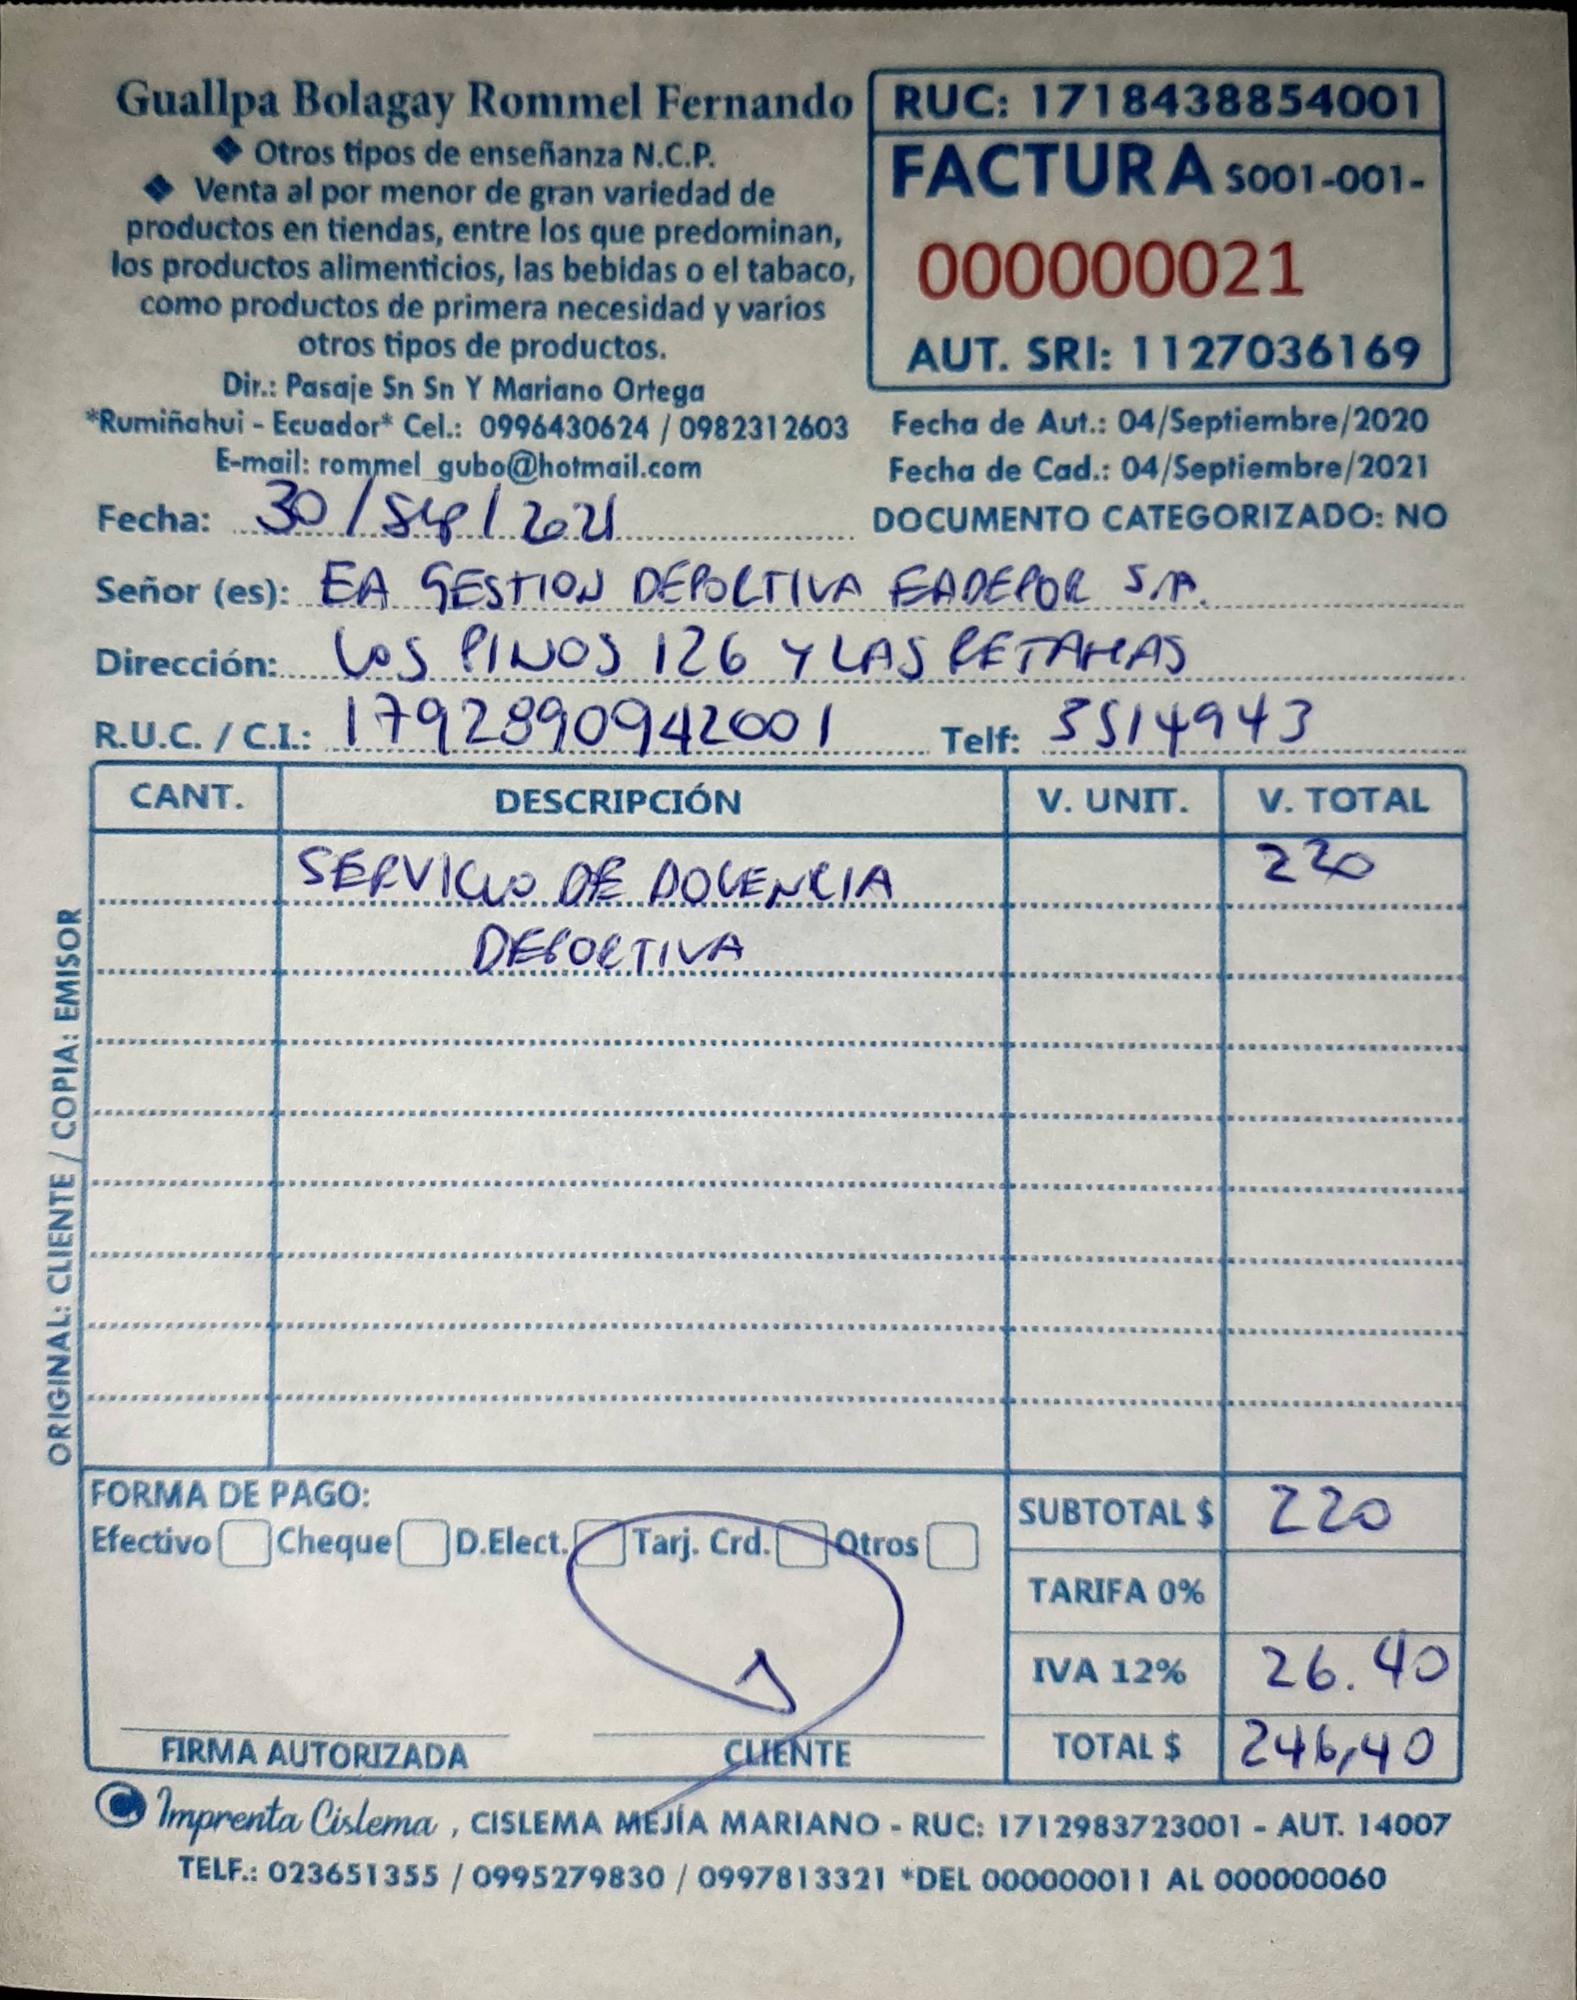 Guallpa Bolagay Rommel Fernando
❖ Otros tipos de enseñanza N.C.P.
❖ Venta al por menor de gran variedad de
productos en tiendas, entre los que predominan,
los productos alimenticios, las bebidas o el tabaco,
como productos de primera necesidad y varios
otros tipos de productos.
Dir.: Pasaje Sn Sn Y Mariano Ortega
*Rumiñahui - Ecuador* Cel.: 0996430624 / 0982312603
E-mail: rommel_gubo@hotmail.com
RUC: 1718438854001
FACTURA S001-001-
000000021
AUT. SRI: 1127036169
Fecha de Aut.: 04/Septiembre/2020
Fecha de Cad.: 04/Septiembre/2021
DOCUMENTO CATEGORIZADO: NO
Fecha: 30/Sep/2021
Señor (es): EA GESTION DEPORTIVA EADEPOR S.A.
Dirección: LOS PINOS 126 Y LAS RETAMAS
R.U.C. / C.I.: 1792890942001 Telf: 3514943
CANT. DESCRIPCIÓN V. UNIT. V. TOTAL
SERVICIO DE DOCENCIA 220
DEPORTIVA
ORIGINAL: CLIENTE / COPIA: EMISOR
FORMA DE PAGO:
Efectivo Cheque D.Elect. Tarj. Crd. Otros
SUBTOTAL $ 220
TARIFA 0%
IVA 12% 26.40
TOTAL $ 246,40
FIRMA AUTORIZADA CLIENTE
Imprenta Cislema, CISLEMA MEJÍA MARIANO - RUC: 1712983723001 - AUT. 14007
TELF.: 023651355 / 0995279830 / 0997813321 *DEL 000000011 AL 000000060